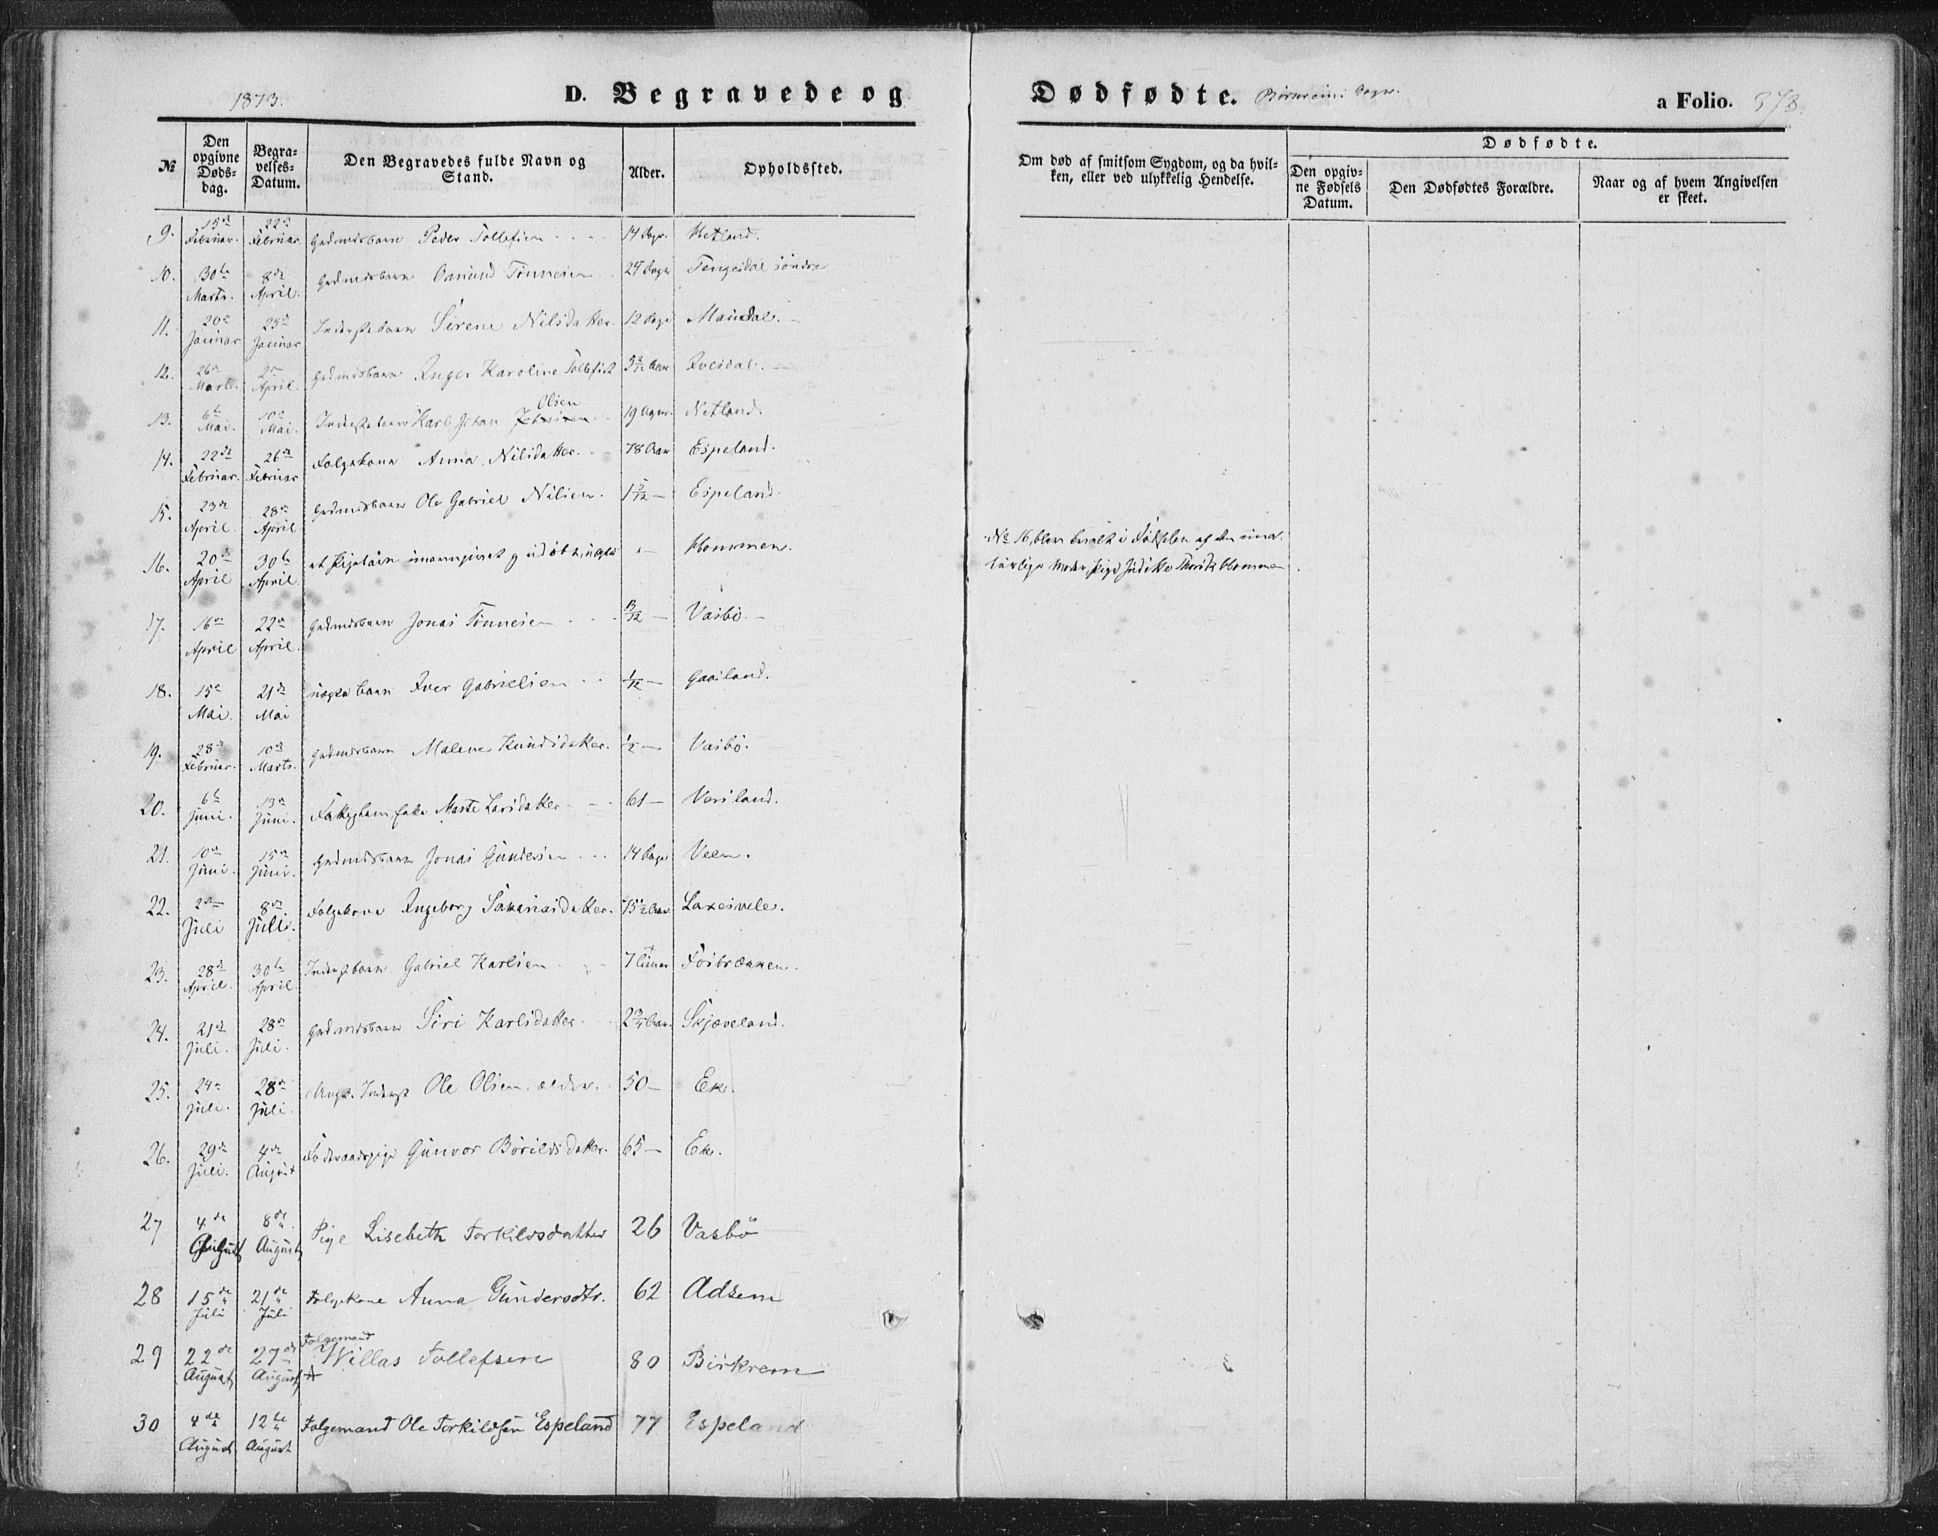 1873.
D. Begravede og Dødfødte. Sogn.
a Folio. 378.
№
Den opgivne Døds-dag.
Begra-velses-Datum.
Den Begravedes fulde Navn og Stand.
Alder.
Opholdssted.
Om død af smitsom Sygdom, og da hvil-ken, eller ved ulykkelig Hendelse.
Dødfødte.
Den opgiv-ne Fødsels Datum.
Den Dødfødtes Forældre.
Naar og af hvem Angivelsen er skeet.
9. 15de Februar. 22de Februar Gaardmandsbarn Peder Tollefsen 14 Dage. Netland.
10. 30te Marts. 8de April. Gaardmandsbarn Tønnesen 24 Dage Tengesdal søndre
11. 20de Januar 25de Januar Inderstbarn Sirene Nilsdatter. 12 Dage Maudal.
12. 26de Marts. 2den April. Gaardmandsbarn Inger Karoline Tollefsdt 5 3/12 Aar Ivesdal.
13. 6te Mai. 10de Mai. Inderstebarn Karl Johan Olsen 19 Netland.
14. 22de Februar. 26de Februar Folgekone Anna Nilsdatter. 78 Aar Espeland.
15. 23de April. 28de April Gaardmandsbarn Ole Gabriel Nilsen. 1 5/12 — Espeland.
16. 20de April 30te April. et Pigebarn unavngivet og udøbt, uægte " — Hommen.
No 16 blev qvalt i Fødselen af den
Moder, Pige Hommen
17. 16de April 22de April. Gaardmandsbarn Jonas Tønnesen /12 — Vasbø.
18. 15de Mai. 21de Mai uægte barn Iver Gabrielsen 1/12 — Gaasland.
19. 28de Februar. 10de Marts. Gaardmandsbarn Malene Knudsdatter. 1/2 — Vasbø.
20. 6te Juni. 13de Juni. Marte Larsdatter 61 — Versland.
21. 10de Juni. 15de Juni. Gaardmandsbarn Jonas Gundersen 14 Dage Veen.
22. 2den Juli 8de Juli. Folgekone Ingeborg Sakariasdatter. 75 1/2 Aar Laxesvele.
23. 28de April. 30te April Inderstbarn Gabriel Karlsen 7 Timer Fosbrækken.
24. 21de Juli. 28de Juli. Gaardmandsbarn Siri Karlsdatter 2 3/4 Aar. Skjæveland.
25. 24de Juli. 28de Juli. Inderst Ole Olsen 50 — Eke.
26. 29de Juli. 4de August Føderaadspige Gunvor Børildsdatter. 65 — Eke.
27 4de August 8de August Pige Lisebeth Torkildsdatter 26 Vasbø
28 15de Juli 21de Juli Folgekone Anna Gundersdtr. 62 Adsem
29 22de August 27de August Folgemand Willas Tollefsen 80 Birkrem
30 4de August 12te August Folgemand Ole Torkildsen Espeland 77 Espeland